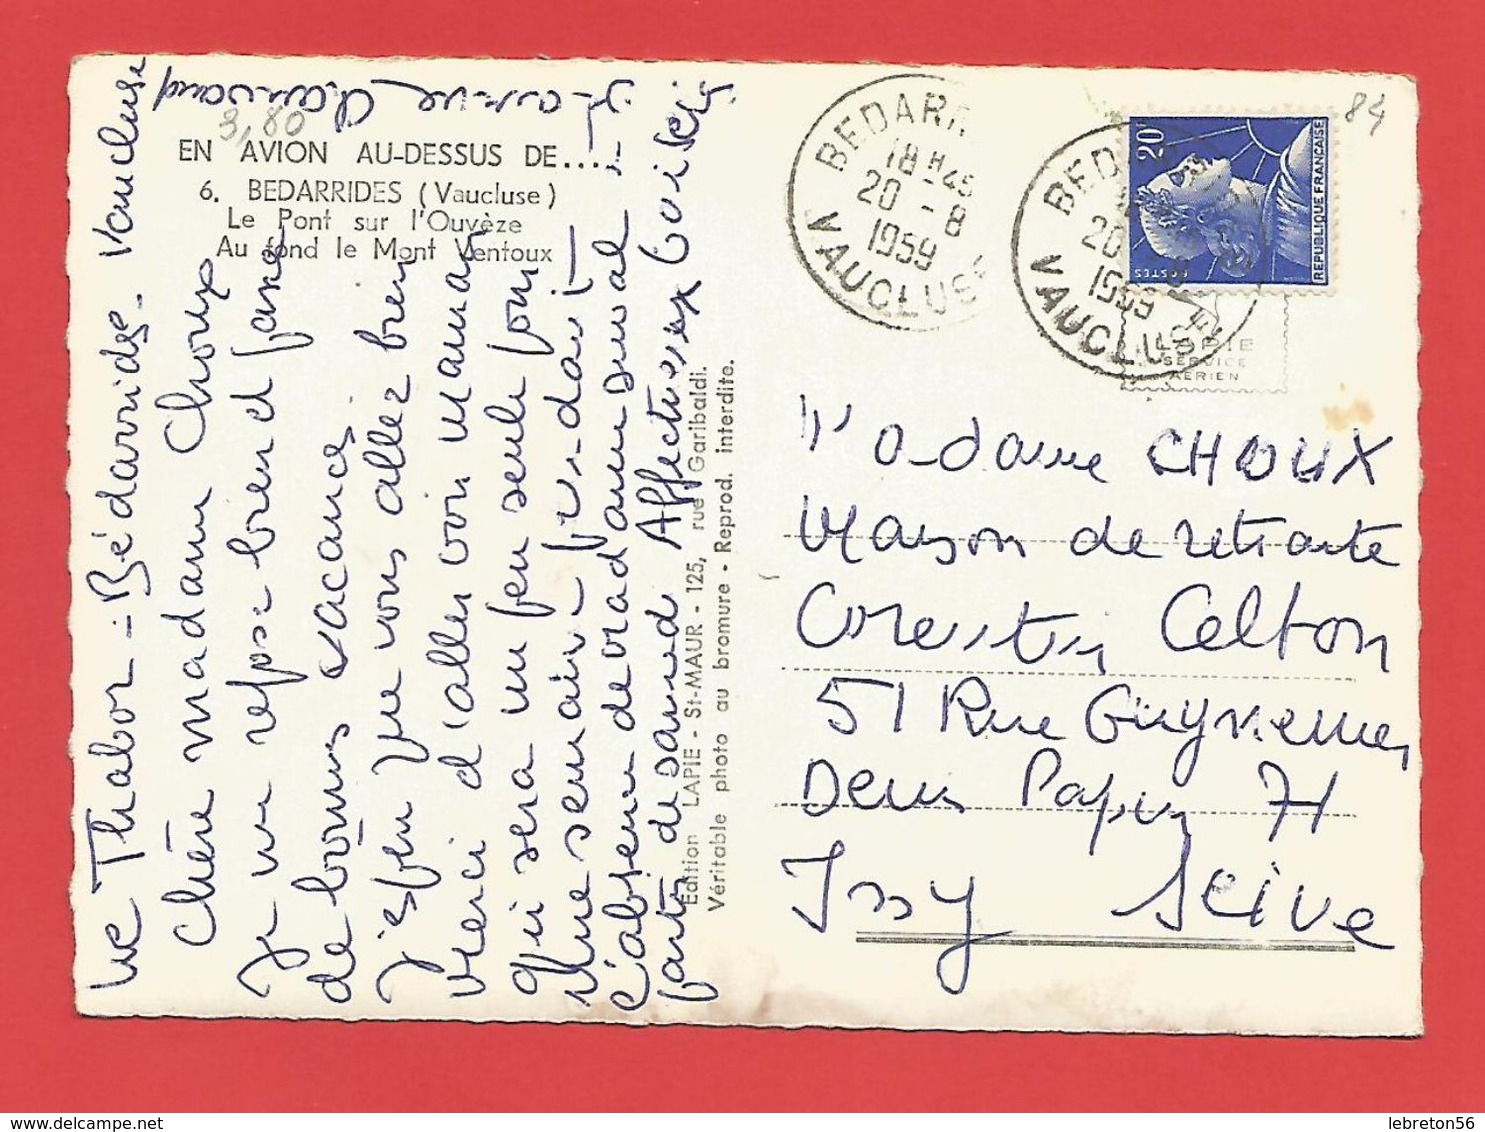 Le Thabor - Bédarrides - Vaucluse
Chère madame Choux
Je me repose bien et passe
de bonnes vacances
J'espère que vous allez bien
Merci d'aller voir maman
qui sera un peu seule pour
une semaine
l'absence de madame
Affectueux baisers
3,80
EN AVION AU-DESSUS DE....
6. BEDARRIDES (Vaucluse)
Le Pont sur l'Ouvèze
Au fond le Mont Ventoux
Edition LAPIE - St-MAUR - 125, rue Garibaldi.
Véritable photo au bromure - Reprod. interdite.
BEDARR
18H45
20 - 8
1959
VAUCLUSE
BEDA
20
1959
VAUCLUSE
20F
POSTES
REPUBLIQUE FRANÇAISE
84
LAPIE
SERVICE
AÉRIEN
Madame CHOUX
Maison de retraite
Corentin Celton
51 Rue Guynemer
Denis Papin 71
Issy Seine
lebreton56